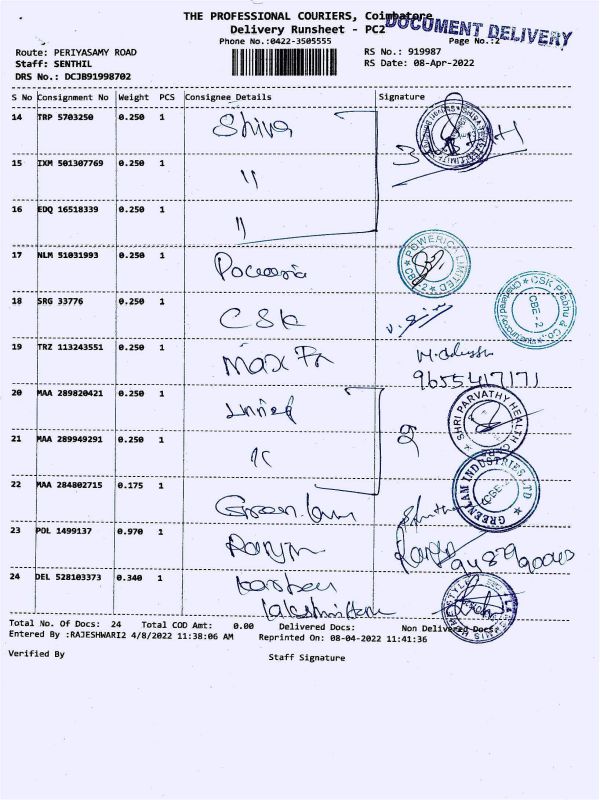 THE PROFESSIONAL COURIERS, Coimbatore
Delivery Runsheet - PC2
DOCUMENT DELIVERY
Phone No.:0422-3505555
Page No.:2
Route: PERIYASAMY ROAD
RS No.: 919987
Staff: SENTHIL
RS Date: 08-Apr-2022
DRS No.: DCJB91998702
S No Consignment No Weight PCS Consignee Details Signature
14 TRP 5703250 0.250 1 Shiva
15 IXM 501307769 0.250 1 "
16 EDQ 16518339 0.250 1 "
17 NLM 51031993 0.250 1
POWERICA LIMITED
18 SRG 33776 0.250 1 CSK
CSK Prabhu & Co.
CBE - 2
19 TRZ 113243551 0.250 1 Max
9655417171
20 MAA 289820421 0.250 1
SHRI PARVATHY HEALTH
21 MAA 289949291 0.250 1 "
22 MAA 284802715 0.175 1 Greenlam
GREENLAM INDUSTRIES LTD
23 POL 1499137 0.970 1
24 DEL 528103373 0.340 1
Total No. Of Docs: 24 Total COD Amt: 0.00 Delivered Docs: Non Delivered Docs:
Entered By :RAJESHWARI2 4/8/2022 11:38:06 AM Reprinted On: 08-04-2022 11:41:36
Verified By Staff Signature